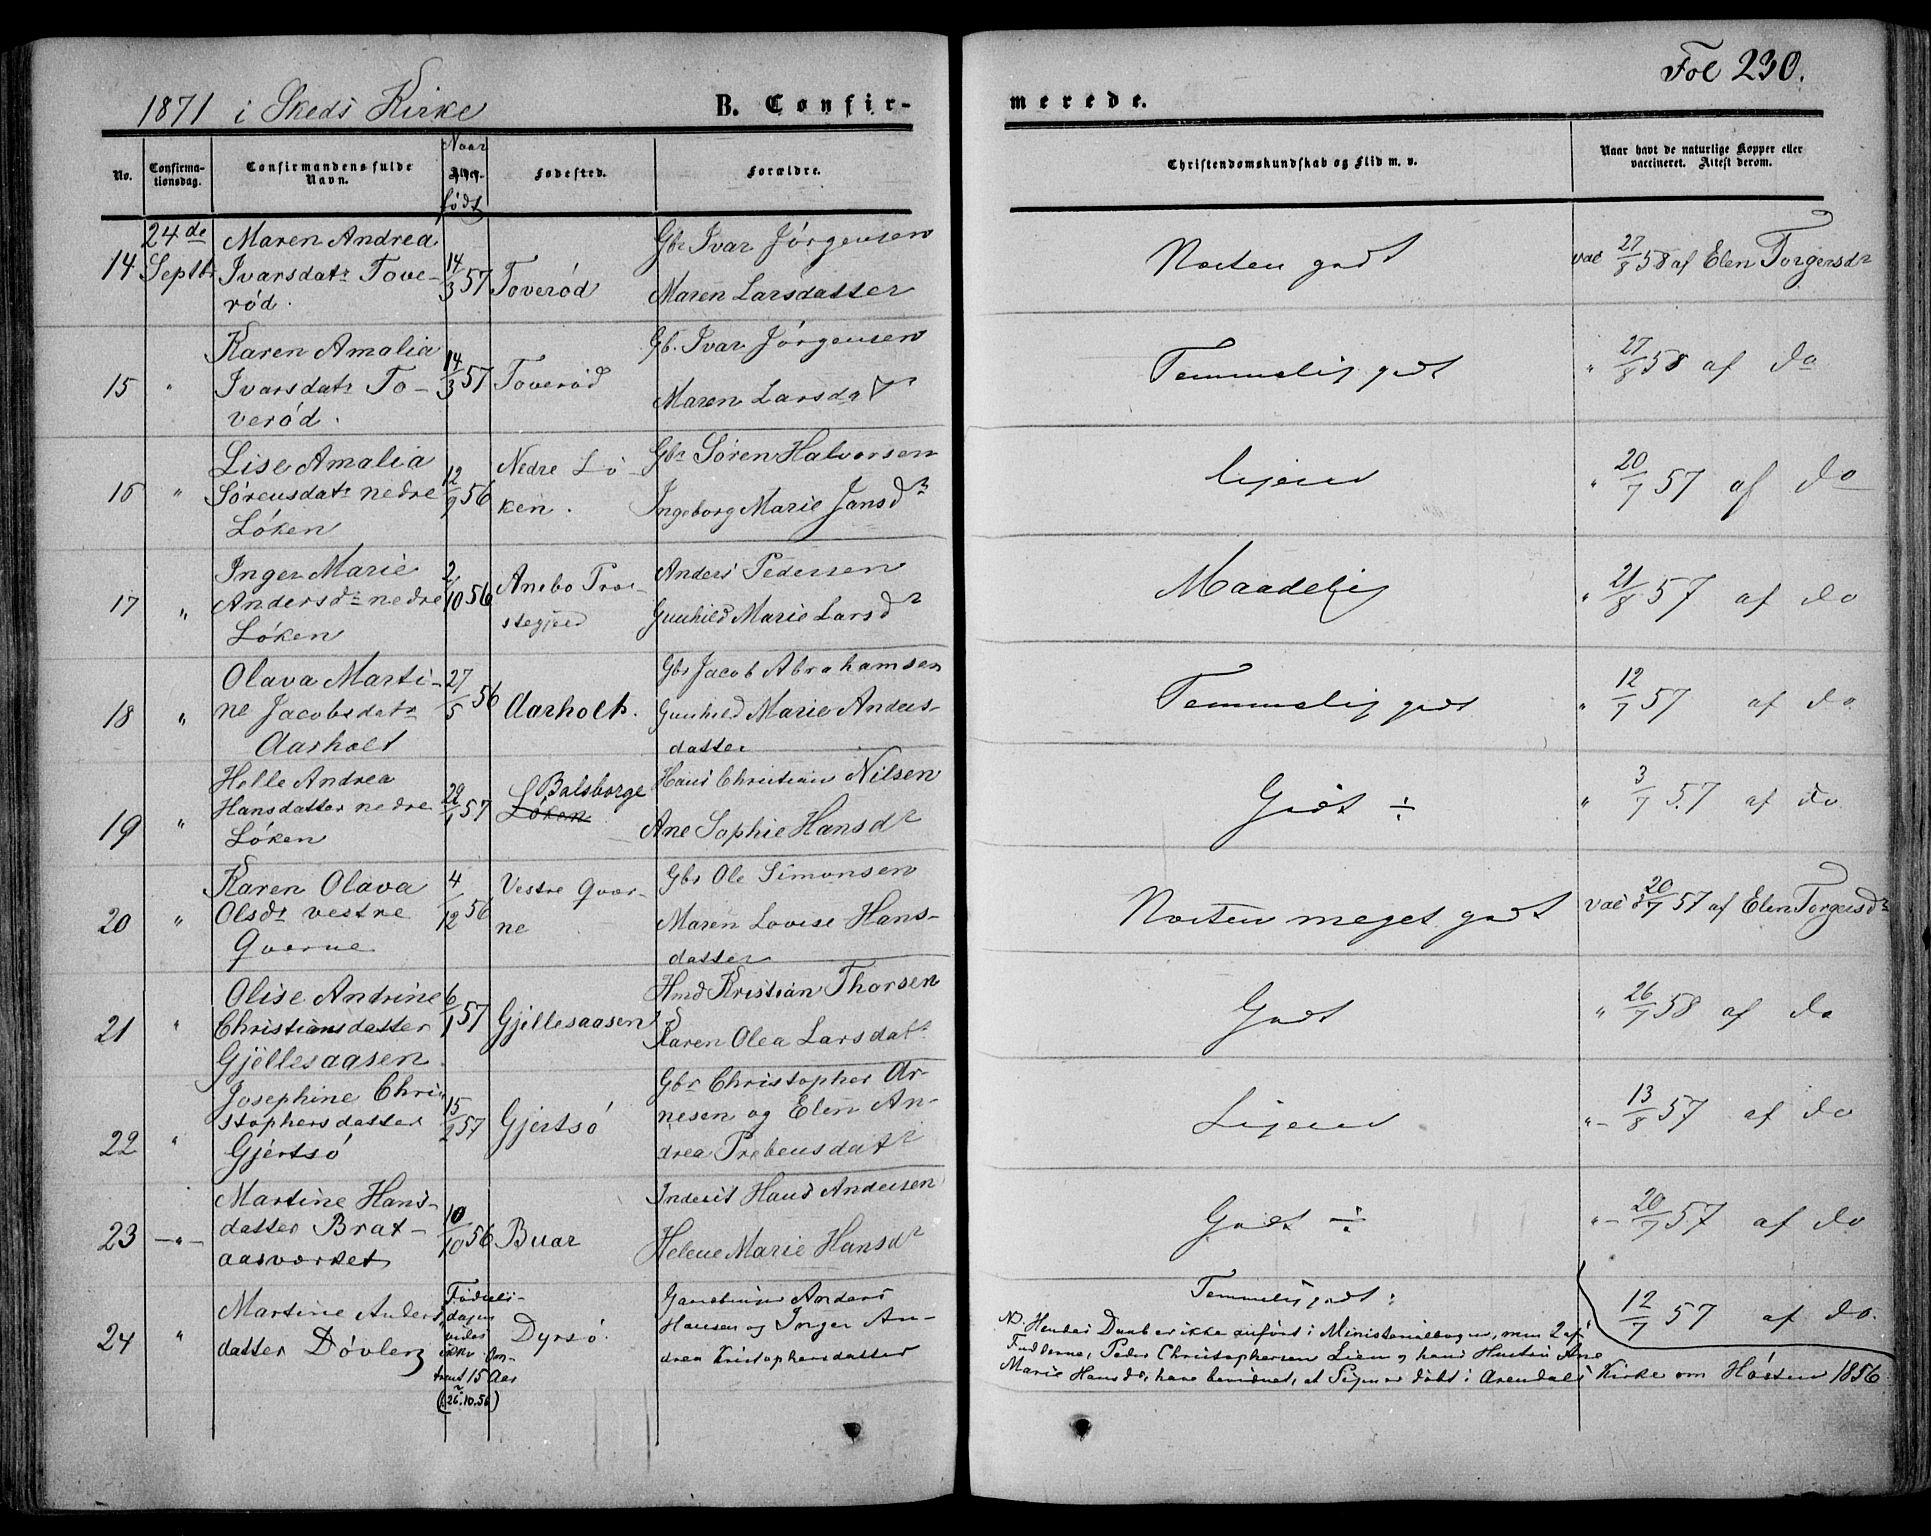 Fol 230.
1871 i Skeds Kirke
B. Confir-
merede.
No.
Confirma-
tionsdag.
Confirmandens fulde
Navn.
Naar
født
Fødested.
Forældre.
Christendomskundskab og Flid m. v.
Naar havt de naturlige Kopper eller
vaccineret. Attest derom.
14
24de
Septbr
Maren Andrea
Ivarsdatr Tove-
rød.
14/3 57
Toverød
Gbr Ivar Jørgensen
Maren Larsdatter
Næsten godt
vac 27/8 58 af Elen Torgersdr
15
"
Karen Amalia
Ivarsdatr To-
verød.
14/3 57
Toverød
Gb. Ivar Jørgensen
Maren Larsdatr
Temmelig godt
" 27/8 58 af do
16
"
Lise Amalia
Sørensdatr nedre
Løken
12/9 56
Nedre Lø-
ken.
Gbr Søren Halvorsen
Ingeborg Marie Jansdr
Ligeud
" 20/7 57 af do
17
"
Inger Marie
Andersdr nedre
Løken
2/10 56
Anebo Præ-
stegjeld
Anders Pedersen
Gunhild Marie Larsdr
Maadelig
" 21/8 57 af do
18
"
Olava Marti-
ne Jacobsdatr
Aarholt
27/5 56
Aarholt.
Gbr Jacob Abrahamsen
Gunhild Marie Anders-
datter
Temmelig godt
" 12/7 57 af do
19
"
Helle Andrea
Hansdatter nedre
Løken
22/1 57
Balsborge
Løken
Hans Christian Nilsen
Ane Sophie Hansdr
Godt ÷
" 3/7 57 af do
20
"
Karen Olava
Olsdr vestre
Qverne
4/12 56
Vestre Qver-
ne
Gbr Ole Simonsen
Maren Lovise Hans-
datter
Næsten meget godt
vac 20/7 57 af Elen Torgersdr
21
"
Olise Andrine
Christiansdatter
Gjellesaasen
6/1 57
Gjellesaasen
Hmd Kristian Thorsen
Karen Olea Larsdatr
Godt
" 26/7 58 af do
22
"
Josephine Chri-
stophersdatter
Gjertsø
15/2 57
Gjertsø
Gbr Christopher Ar-
nesen og Elen An-
drea Prebensdatr
Ligeud
" 13/8 57 af do
23
"
Martine Hans-
datter Brat-
aasværket
10/10 56
Buar
Inderst Hans Andersen
Helene Marie Hansdr
Godt ÷
" 20/7 57 af do
24
"
Martine Anders
datter Døvler
Fødsels-
dagen
vides
ikke. Om-
trent 15 Aar
(26.10.56)
Dyrsø
Anders
Hansen og Inger An-
drea Kristophersdatter
Temmelig godt:
12/7 57 af do.
NB. Hendes Daab er ikke anført i Ministerialbogen, men 2 af
Fadderne, Peder Christophersen Lien og hans Hustru Ane
Marie Hansdr, have bevidnet, at Pigen er døbt i Arendals Kirke om Høsten 1856